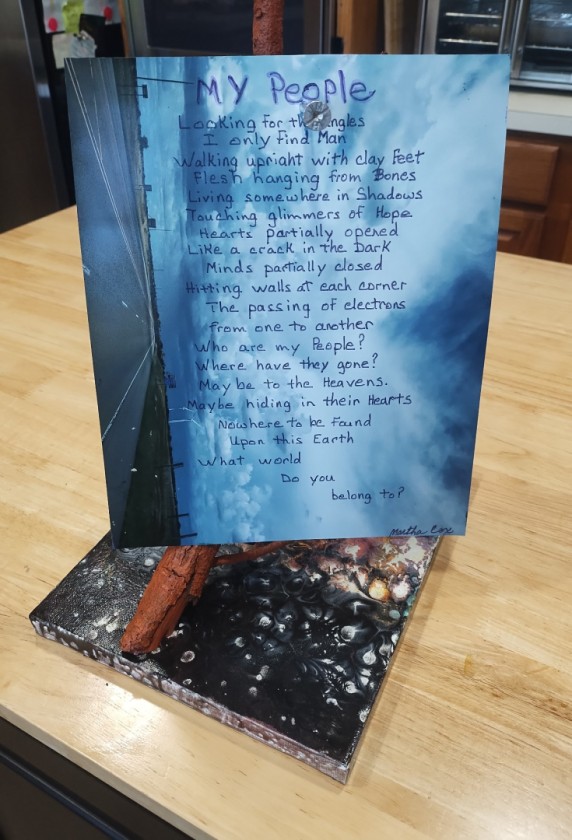 MY People
Looking for the Angles
I only find Man
Walking upright with clay feet
Flesh hanging from Bones
Living somewhere in Shadows
Touching glimmers of Hope
Hearts partially opened
Like a crack in the Dark
Minds partially closed
Hitting walls at each corner
The passing of electrons
from one to another
Who are my People?
Where have they gone?
Maybe to the Heavens.
Maybe hiding in their Hearts
Nowhere to be found
Upon this Earth
What world
Do you
belong to?